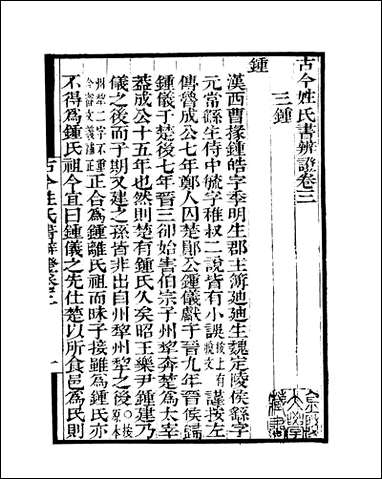 古今姓氏書辨證卷三
三鍾
鍾
漢西曹掾鍾皓字季明生郡主簿廸廸生魏定陵侯繇字
元常繇生侍中毓字稚叔二說皆有小誤按上有脫文謹按左
傳魯成公七年鄭人囚楚鄖公鍾儀獻于晉九年晉侯歸
鍾儀于楚後七年晉三郤始害伯宗子州犁奔楚爲太宰
蓋成公十五年也然則楚有鍾氏久矣昭王樂尹鍾建乃
儀之後而子期又建之孫皆非出自州犁之後○按原本
州犁二字不重今審文義增正正合爲鍾離氏祖而昧子接雖爲鍾氏亦
不得爲鍾氏祖今宜曰鍾儀之先仕楚以所食邑爲氏則
古今姓氏書辯證卷三 一